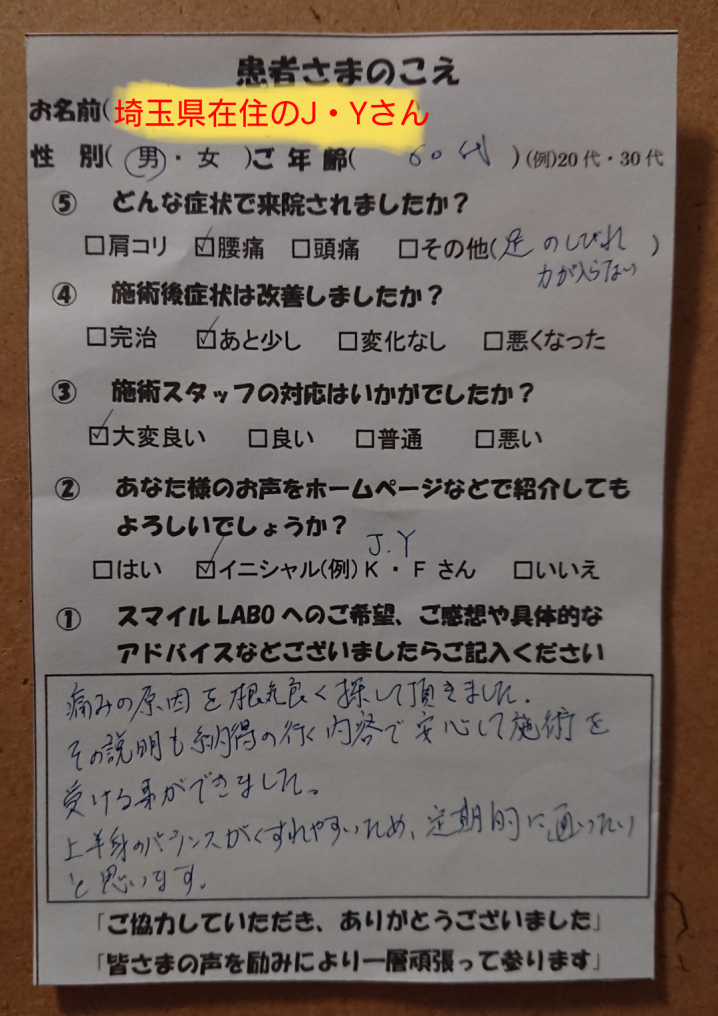 患者さまのこえ
お名前(埼玉県在住のJ・Yさん
性 別(男・女 )ご年齢( 60代 )(例)20代・30代
⑤ どんな症状で来院されましたか？
□肩コリ ☑腰痛 □頭痛 □その他(足のしびれ )
力が入らない
④ 施術後症状は改善しましたか？
□完治 ☑あと少し □変化なし □悪くなった
③ 施術スタッフの対応はいかがでしたか？
☑大変良い □良い □普通 □悪い
② あなた様のお声をホームページなどで紹介しても
よろしいでしょうか？
J.Y
□はい ☑イニシャル(例) K ・ F さん □いいえ
① スマイル LABO へのご希望、ご感想や具体的な
アドバイスなどございましたらご記入ください
痛みの原因を根気良く探して頂きました.
その説明も納得の行く内容で安心して施術を
受ける事ができました。
上半身のバランスがくずれやすいため、定期的に通いたい
と思います。
「ご協力していただき、ありがとうございました」
「皆さまの声を励みにより一層頑張って参ります」